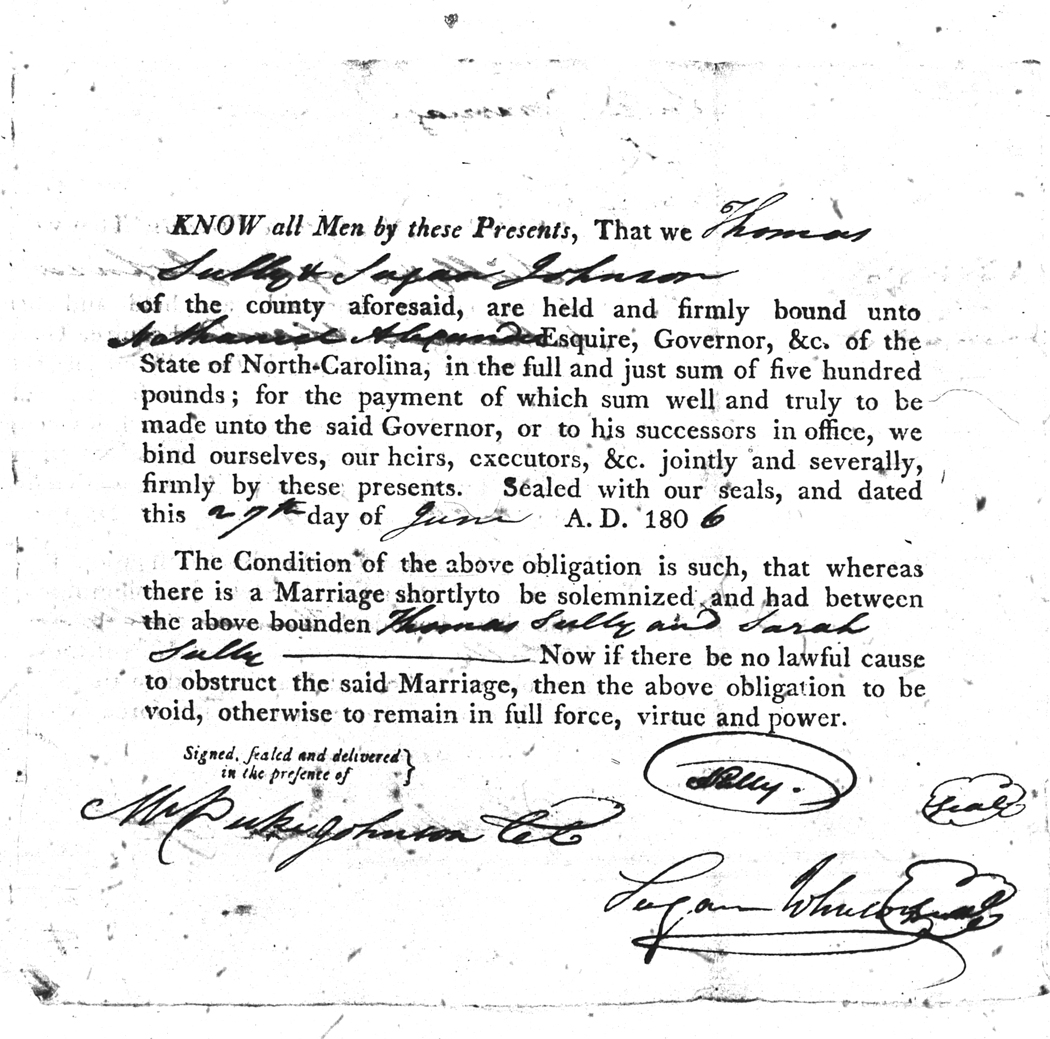 KNOW all Men by these Presents, That we Thomas
Sully & Sugan Johnson
of the county aforesaid, are held and firmly bound unto
Nathaniel Alexander Esquire, Governor, &c. of the
State of North-Carolina, in the full and just sum of five hundred
pounds; for the payment of which sum well and truly to be
made unto the said Governor, or to his successors in office, we
bind ourselves, our heirs, executors, &c. jointly and severally,
firmly by these presents. Sealed with our seals, and dated
this 27th day of June A. D. 1806
The Condition of the above obligation is such, that whereas
there is a Marriage shortlyto be solemnized and had between
the above bounden Thomas Sully and Sarah
Sully Now if there be no lawful cause
to obstruct the said Marriage, then the above obligation to be
void, otherwise to remain in full force, virtue and power.
Signed, ſealed and delivered
in the preſence of
Sully.
Seal
Johnson CC
Sugan Johnson Seal